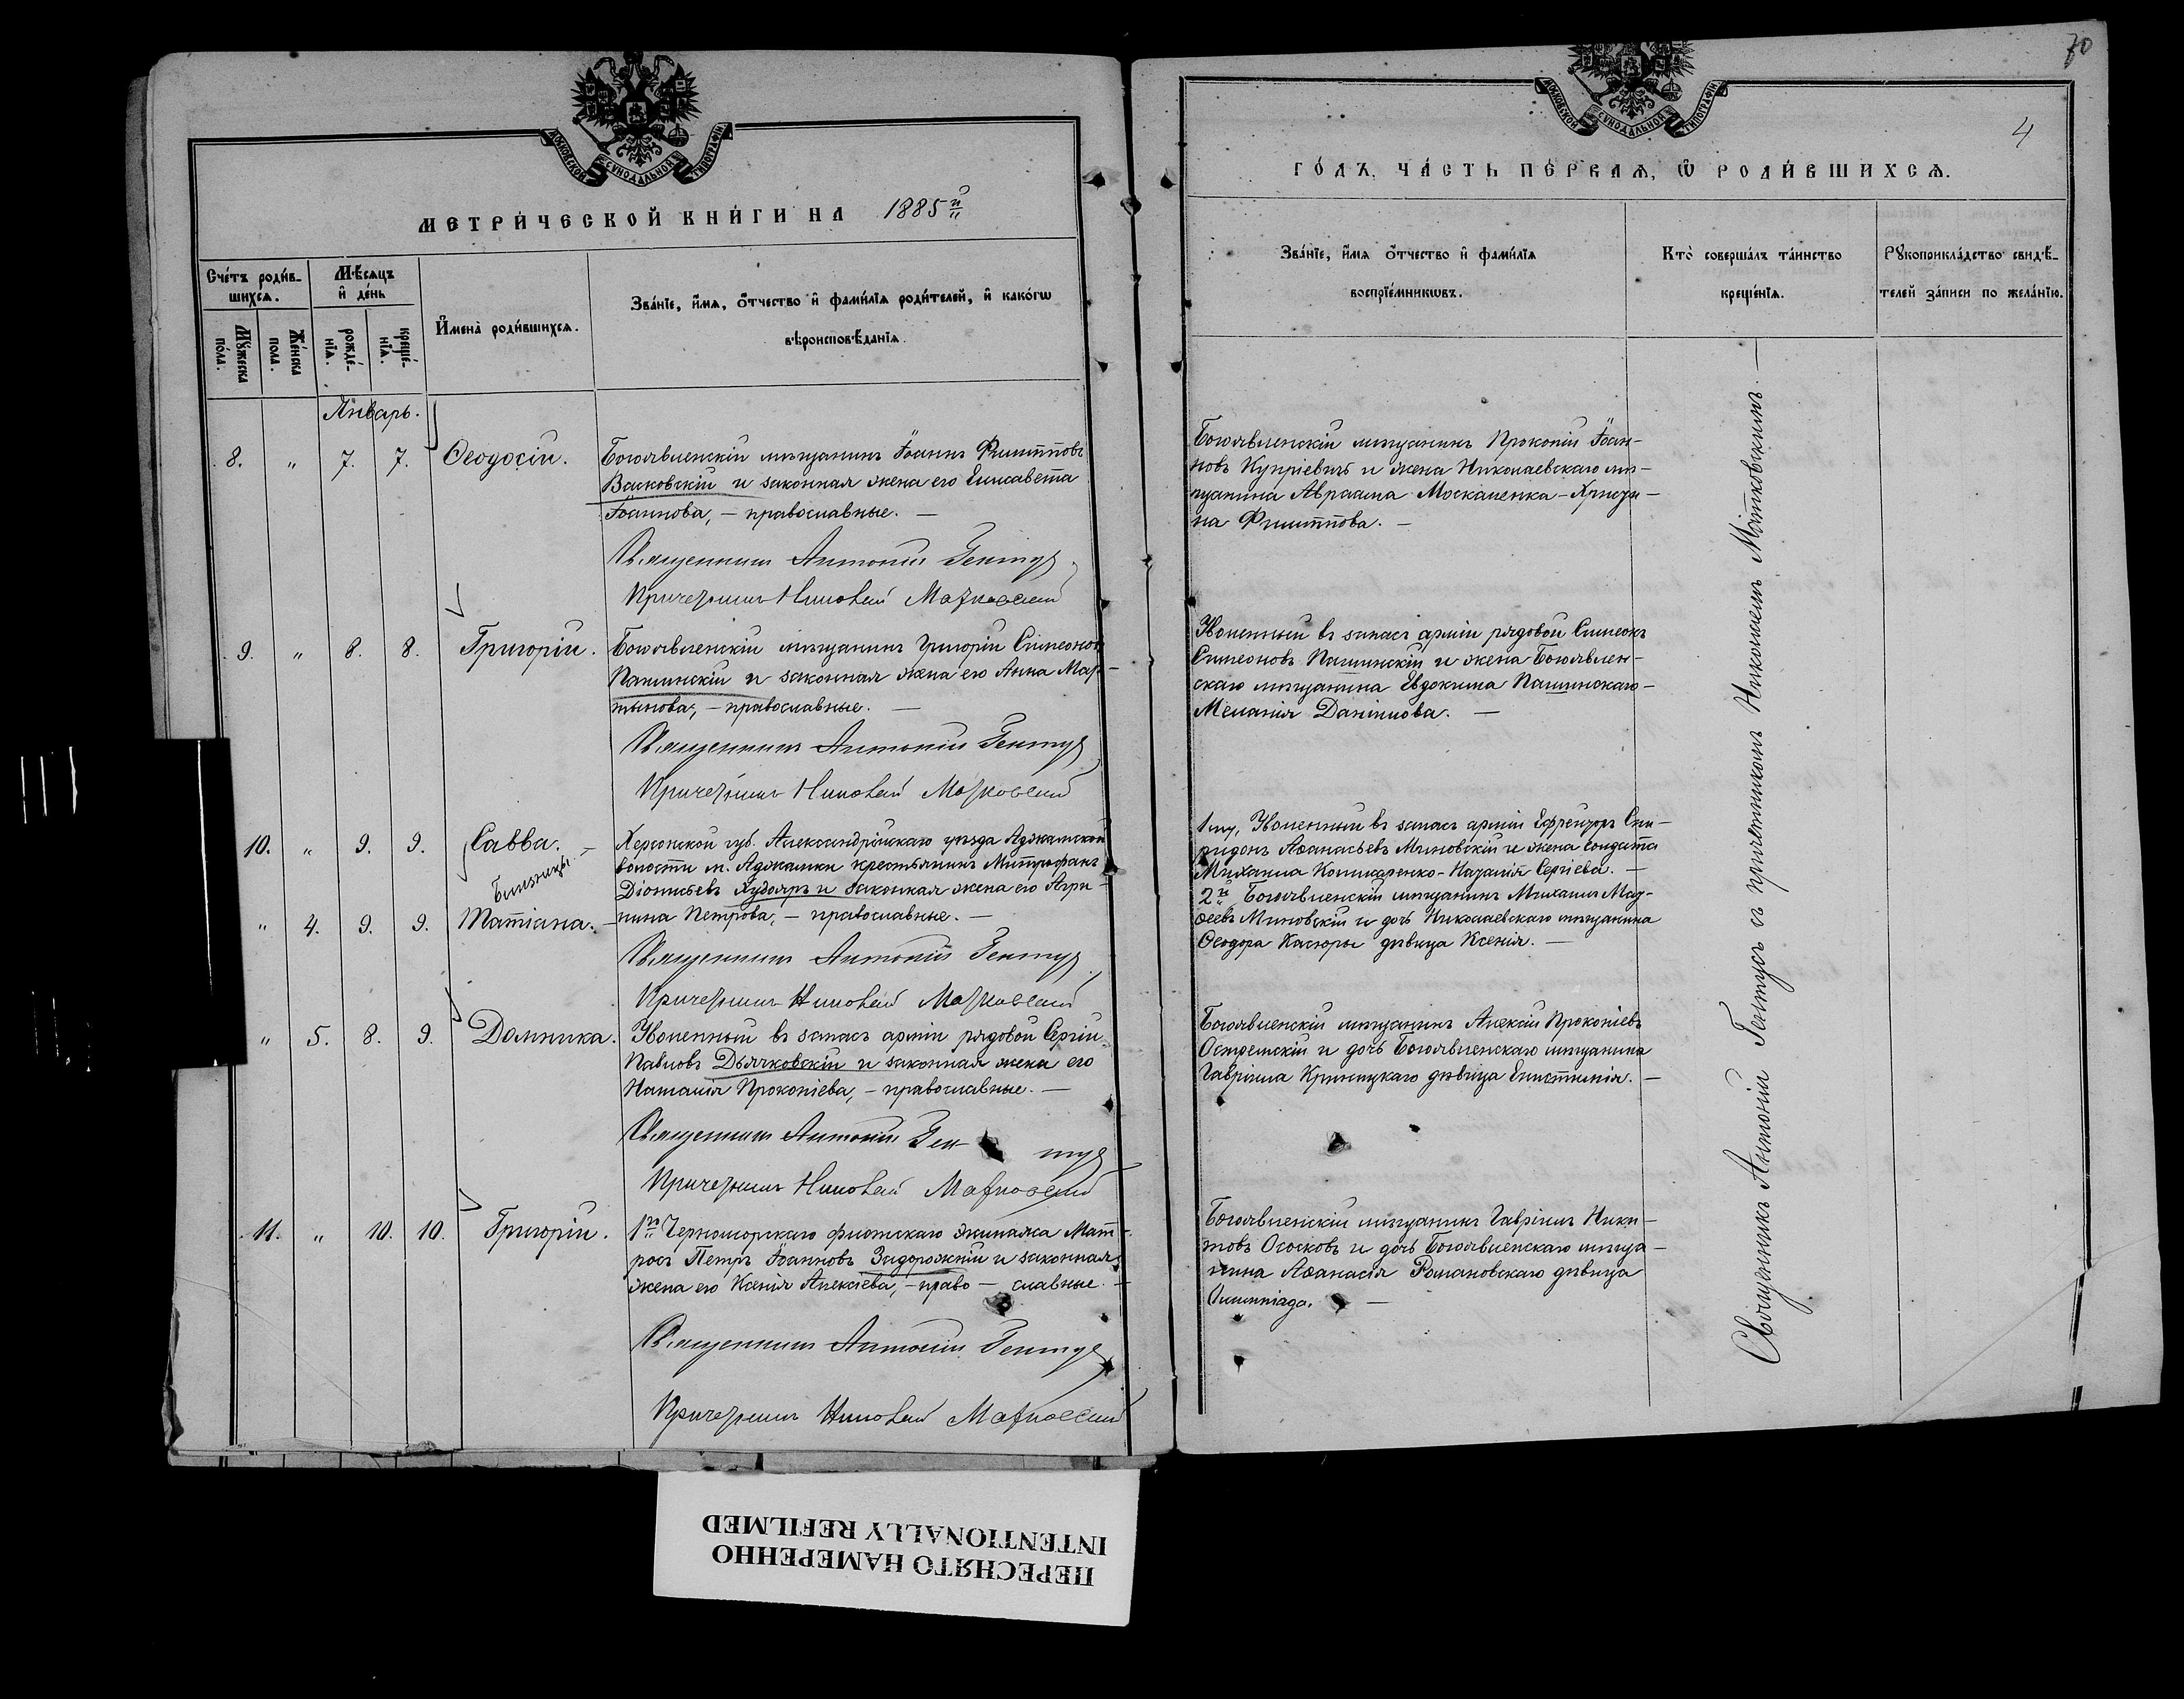 70
4
МОСКОВСКОЙ СѴНОДАЛЬНОЙ ТИПОГРАФІИ
МЕТРИ́ЧЕСКОЙ КНИ́ГИ НА 1885й
Сче́тъ роди́в-
шихсѧ.
Мѣ́сѧцъ
и҆ де́нь
Мꙋ́жеска
по́ла.
Же́нска
пола.
рожде́-
нїѧ.
креще́-
нїѧ.
И҆мена̀ роди́вшихсѧ.
Зва́нїе, и҆́мѧ, ѻ҆́тчество и҆ фами́лїѧ роди́телей, и҆ како́гѡ
вѣроисповѣ́данїѧ.
Январь.
8. " 7. 7. Ѳеодосій.
Богоявленскій мѣщанинъ Іоаннъ Филипповъ
Васковскій и законная жена его Елисавета
Іоаннова, – православные. –
Священникъ Антоній Гентуз
Причетникъ Николай Матковский
9. " 8. 8. Григорій.
Богоявленскій мѣщанинъ Григорій Симеоновъ
Пашинскій и законная жена его Анна Мар-
тынова, – православные. –
Священникъ Антоній Гентуз
Причетникъ Николай Матковский
10. " 9. 9. Савва. –
Близнецы.
" 4. 9. 9. Татіана. –
Херсонской губ. Александрійскаго уѣзда Аджамской
волости м. Аджамки крестьянинъ Митрофанъ
Діонисьевъ Худояръ и законная жена его Агри-
пина Петрова, – православные. –
Священникъ Антоній Гентуз
Причетникъ Николай Матковский
" 5. 8. 9. Домника.
Уволенный въ запасъ арміи рядовой Сергій
Павловъ Дьячковскій и законная жена его
Наталія Прокопіева, – православные. –
Священникъ Антоній Ген туз
Причетникъ Николай Матковский
11. " 10. 10. Григорій.
1го Черноморскаго флотскаго экипажа Мат-
росъ Петръ Іоанновъ Задорожній и законная
жена его Ксенія Алексіева, – право – славные. –
Священникъ Антоній Гентуз
Причетникъ Николай Матковский
МОСКОВСКОЙ СѴНОДАЛЬНОЙ ТИПОГРАФІИ
ГО́ДЪ, ЧА́СТЬ ПЕ́РВАѦ, Ѡ҆ РОДИ́ВШИХСѦ.
Зва́нїе, и҆́мѧ ѻ҆́тчество и҆ фами́лїѧ
воспрїе́мникѡвъ.
Кто̀ соверша́лъ та́инство
креще́нїѧ.
Рꙋкоприкла́дство свидѣ́-
телей за́писи по жела́нїю.
Богоявленскій мѣщанинъ Прокопій Іоан-
новъ Купріевичъ и жена Николаевскаго мѣ-
щанина Авраама Москаленка – Христи-
на Филиппова. –
Уволенный въ запасъ арміи рядовой Симеонъ
Симеоновъ Пашинскій и жена Богоявлен-
скаго мѣщанина Евдокима Пашинскаго –
Меланія Даніилова. –
1й, Уволенный въ запасъ арміи Ефрейторъ Спи-
ридонъ Аѳанасьевъ Миновскій и жена солдата
Михаила Кошкаренко – Наталія Сергіева. –
2й, Богоявленскій мѣщанинъ Михаилъ Мат-
ѳеевъ Миновскій и дочь Николаевскаго мѣщанина
Ѳеодора Касюры дѣвица Ксенія. –
Богоявленскій мѣщанинъ Алексій Прокопіевъ
Остремскій и дочь Богоявленскаго мѣщанина
Гавріила Криницкаго дѣвица Епистимія. –
Богоявленскій мѣщанинъ Гавріилъ Ники-
товъ Ососковъ и дочь Богоявленскаго мѣща-
нина Аѳанасія Романовскаго дѣвица
Олимпіада. –
Священникъ Антоній Гентусъ съ причетникомъ Николаемъ Матковскимъ. –
ПЕРЕСНЯТО НАМЕРЕННО
INTENTIONALLY REFILMED